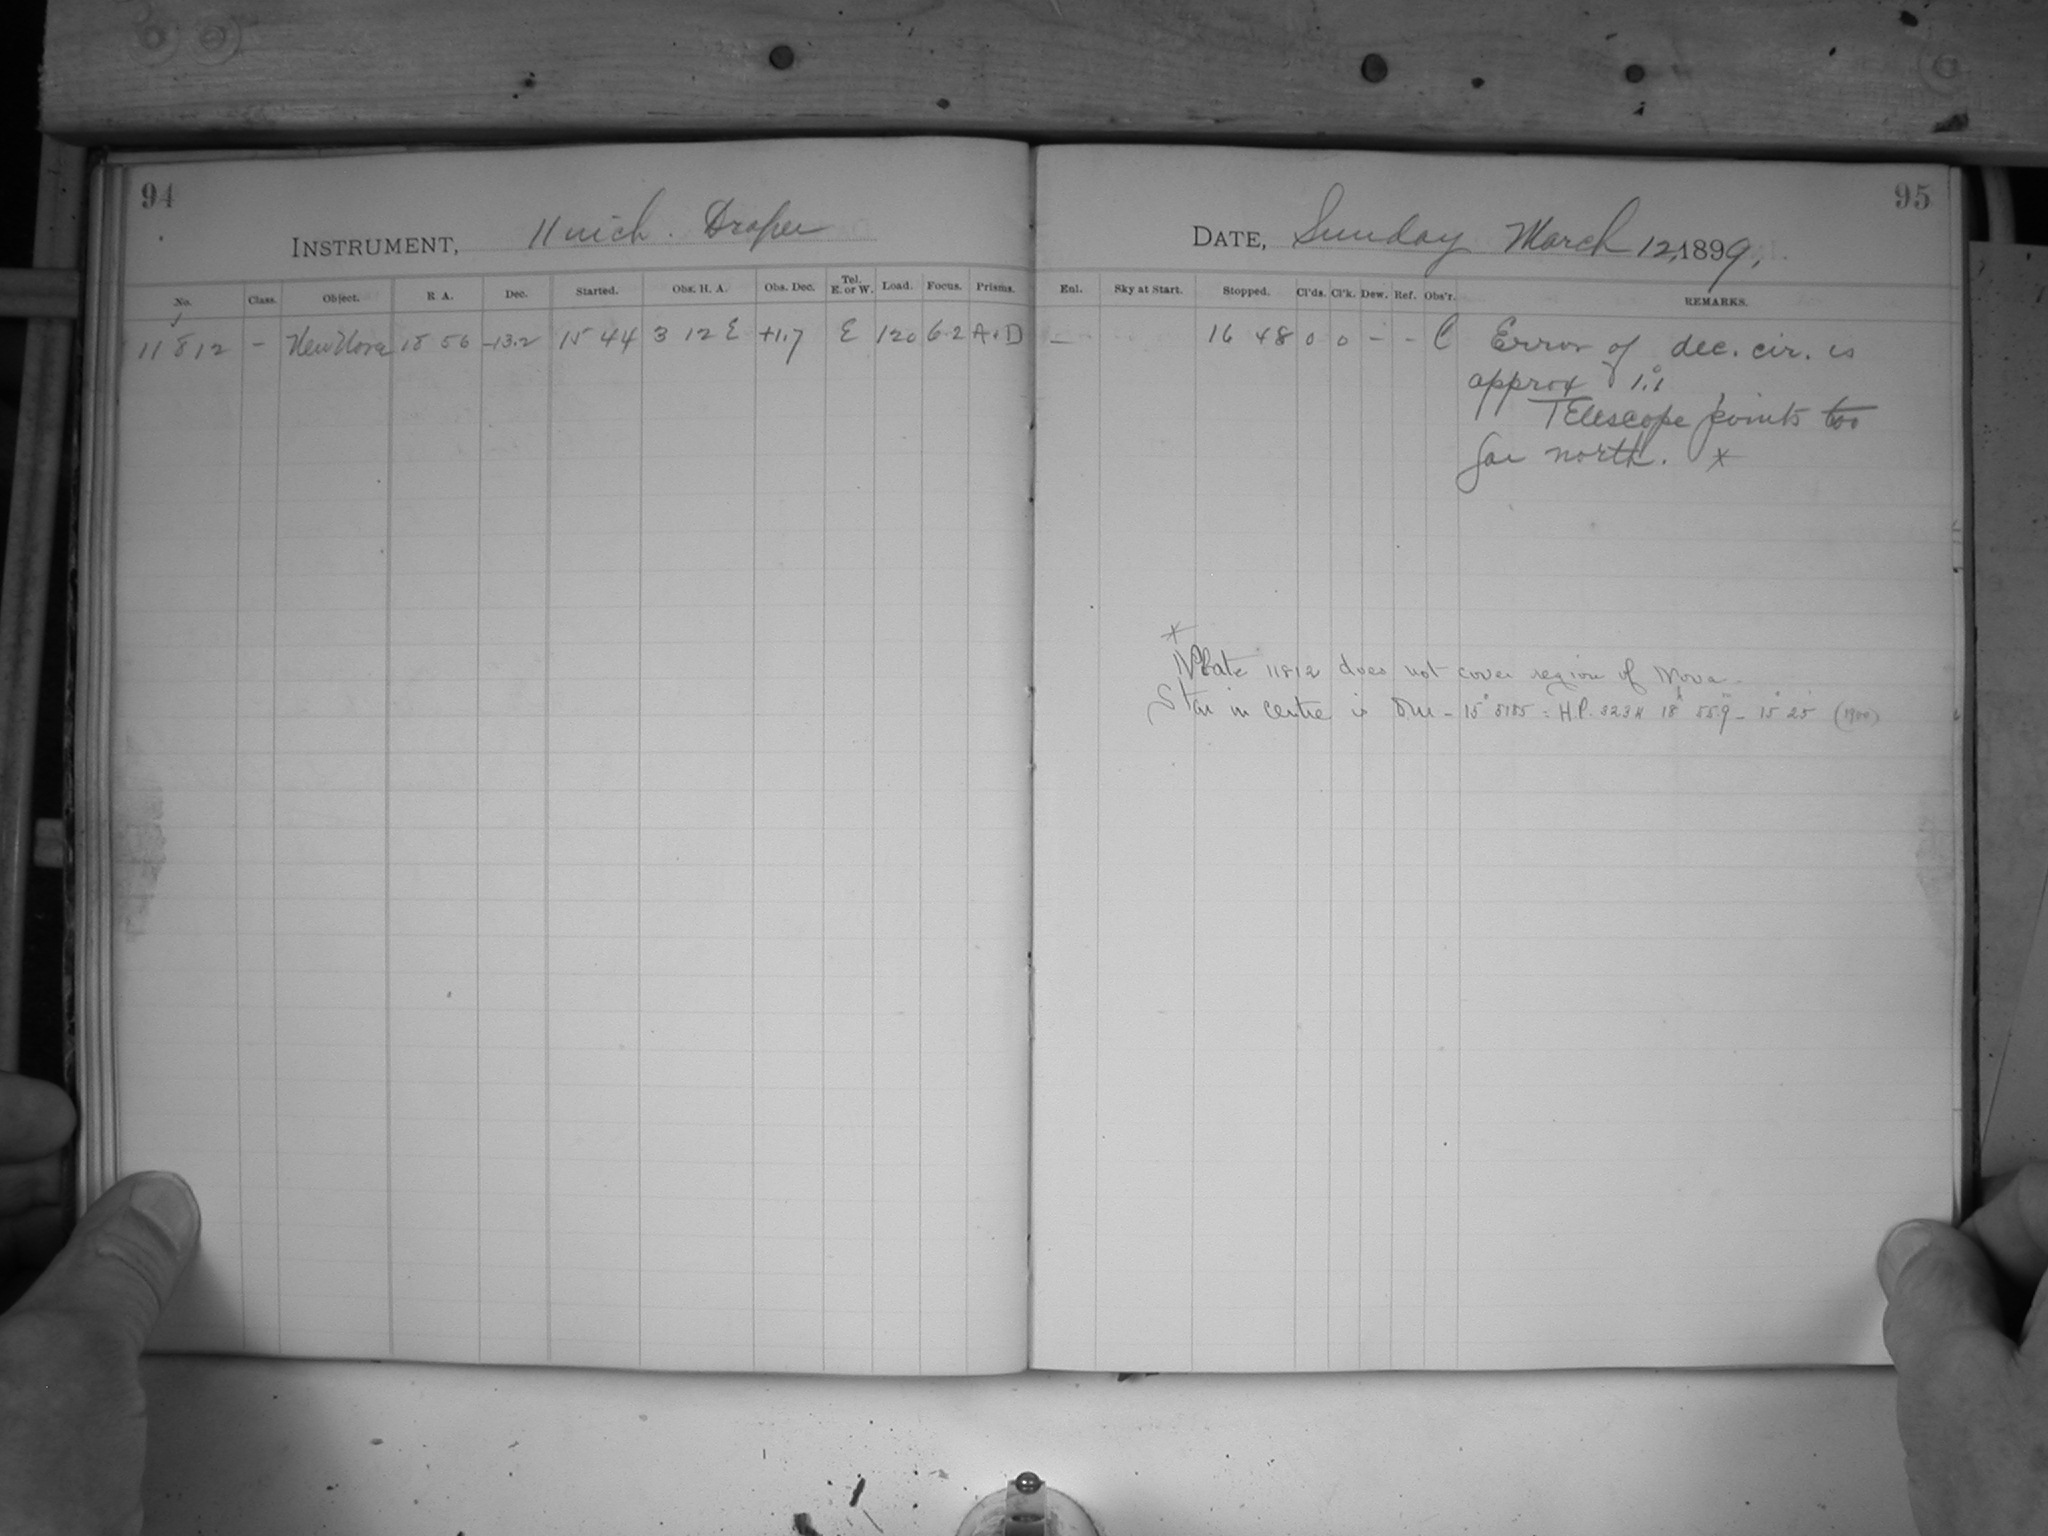 94
INSTRUMENT, 11 inch. Draper
No. Class. Object. R A. Dec. Started. Obs. H. A. Obs. Dec. Tel. E. or W. Load. Focus. Prisms.
11812 - New Nova 18 56 -13.2 15 44 3 12 E +1.7 E 120 6.2 A.D
95
DATE, Sunday March 12, 1899.
Enl. Sky at Start. Stopped. Cl'ds. Cl'k. Dew. Ref. Obs'r. REMARKS.
- 16 48 0 0 - - C Error of dec. cir. is
approx 1°.1
Telescope points too
far north. *
*
Plate 11812 does not cover region of Nova.
Star in centre is DM - 15° 5185 = H.P. 3234 18h 55m.9 - 15° 25' (1900)